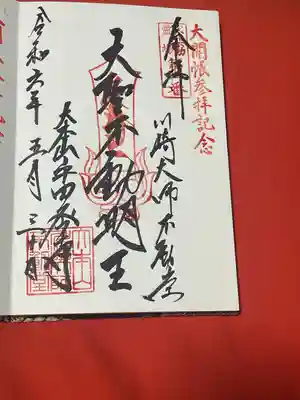 大開帳参拝記念
奉拝
川崎大師不動堂
大聖不動明王
大本山平間寺
令和六年五月三十日